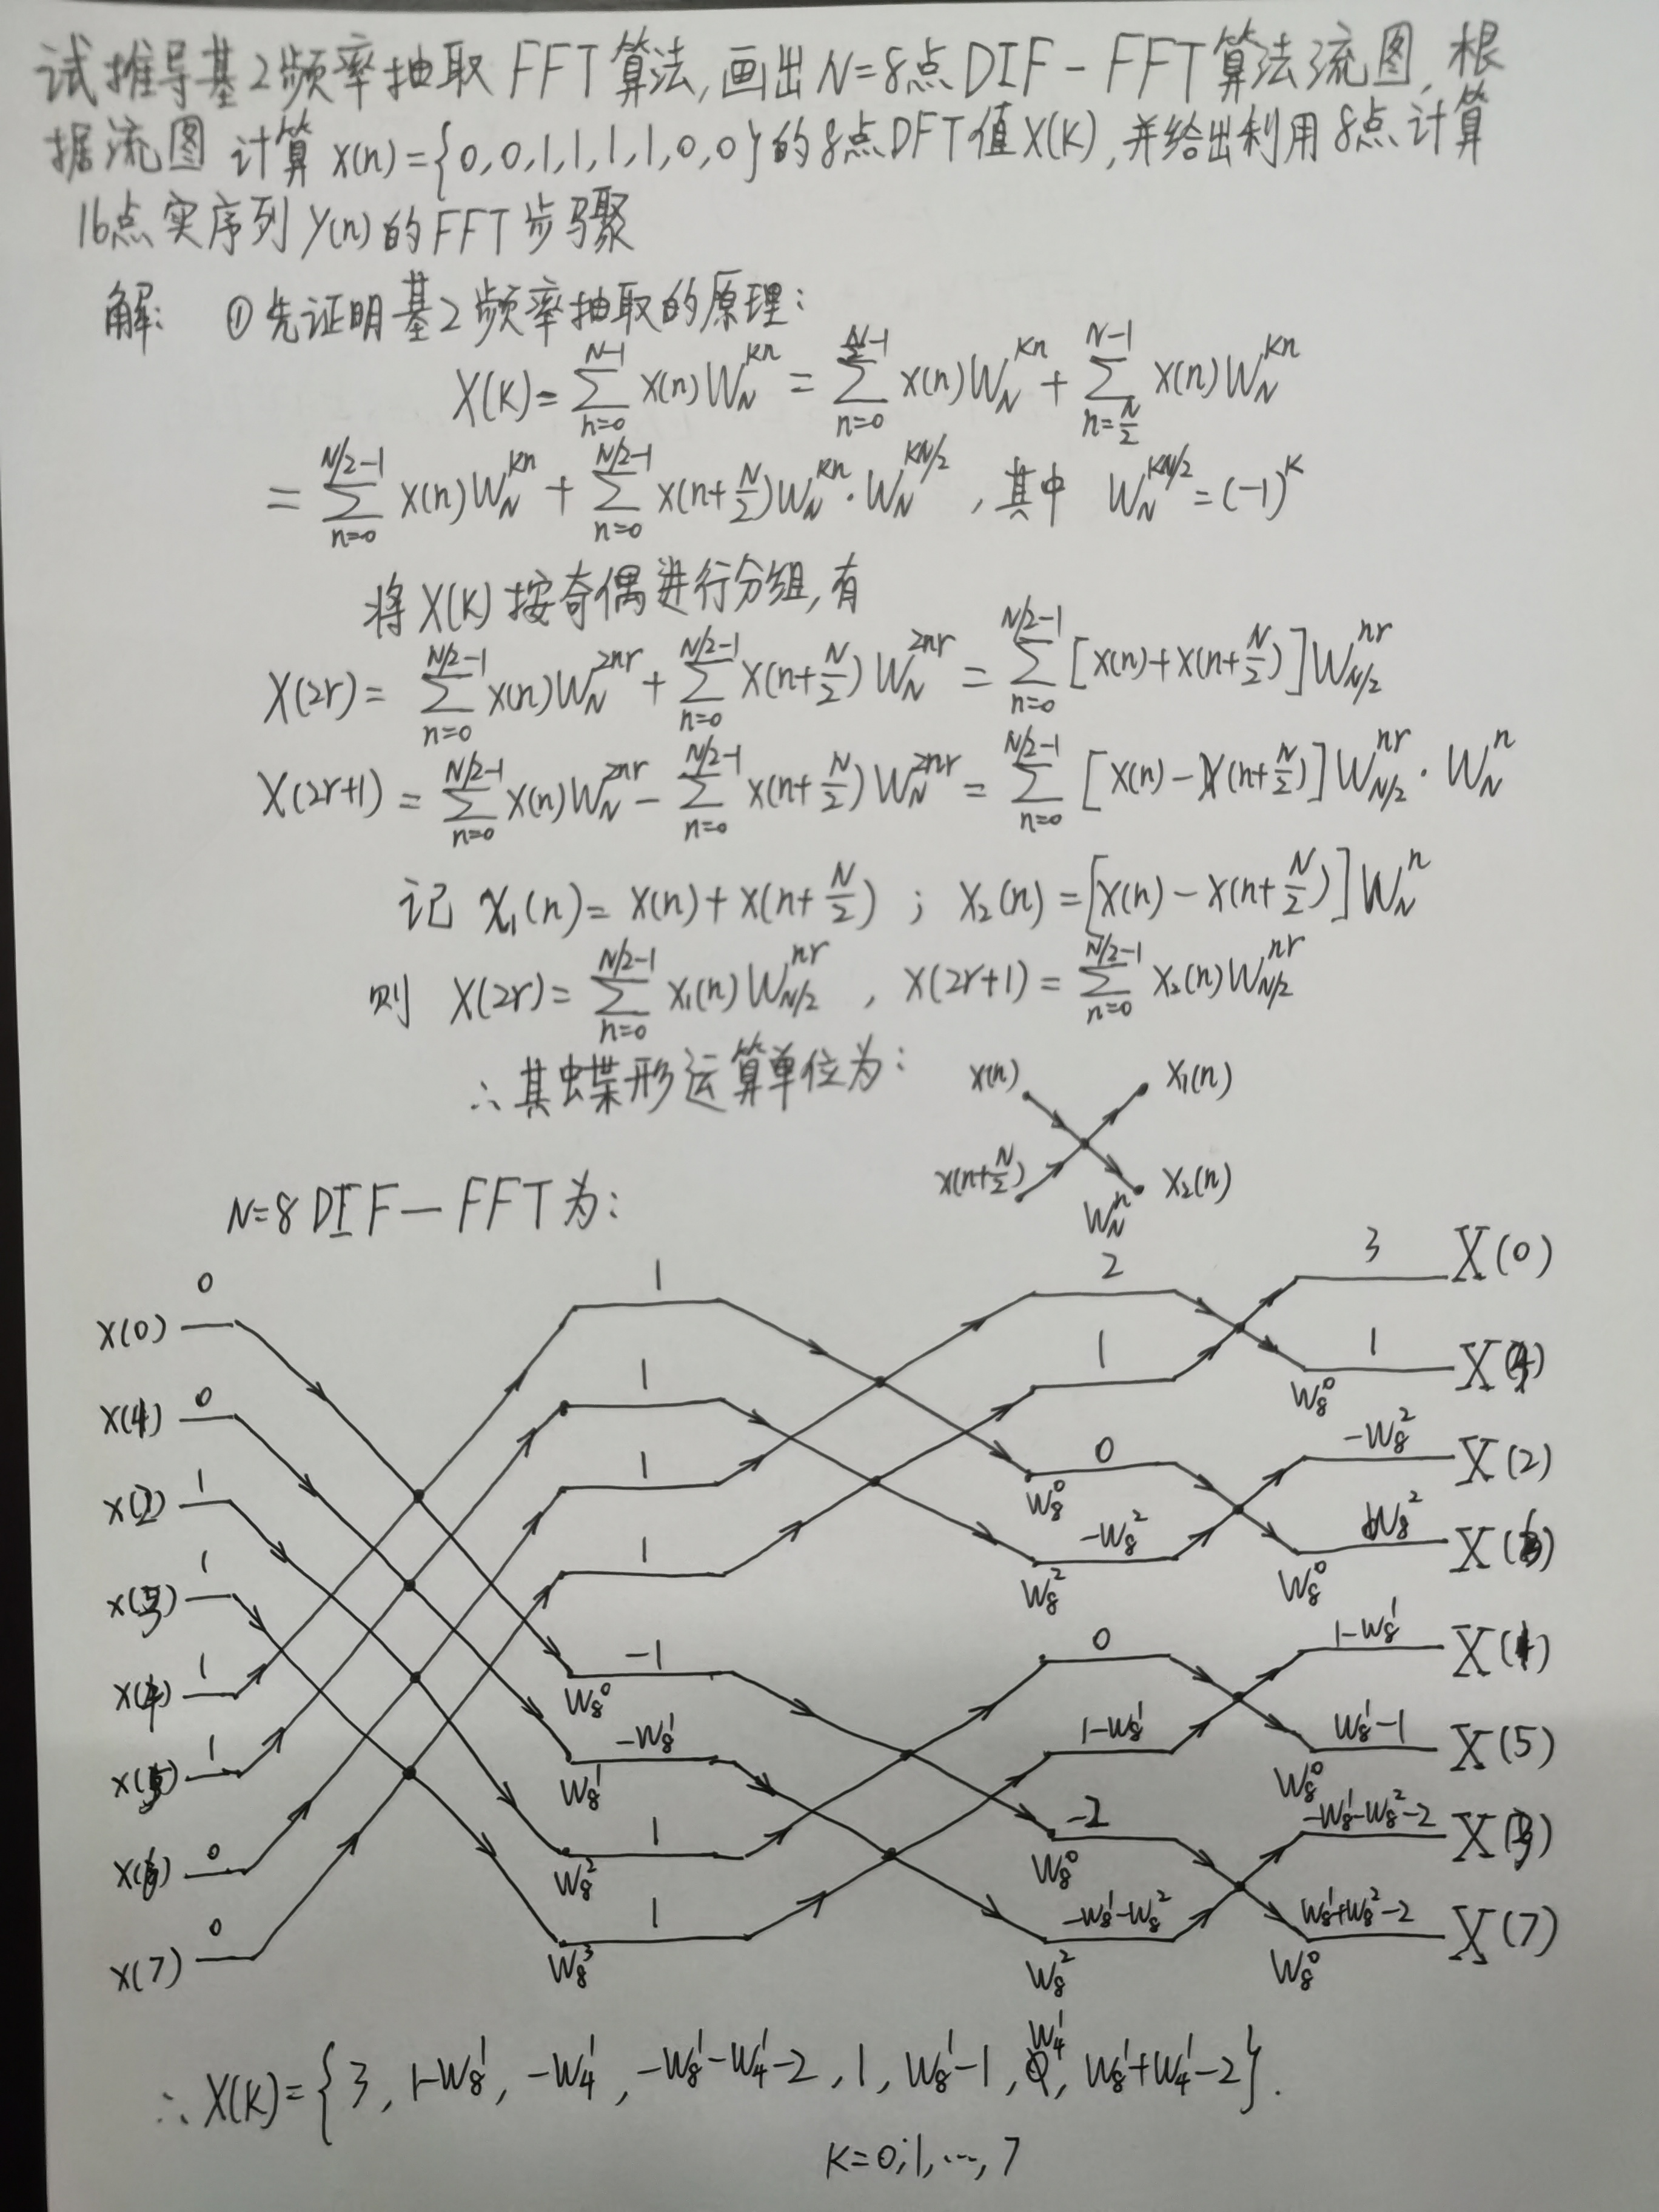 试推导基2频率抽取FFT算法,画出N=8点DIF-FFT算法流图,根
据流图 计算 x(n)={0,0,1,1,1,1,0,0}的8点DFT值X(K),并给出利用8点计算
16点实序列y(n)的FFT步骤
解: ①先证明基2频率抽取的原理:
X(K)=∑_{n=0}^{N-1} x(n)W_N^{kn} = ∑_{n=0}^{N/2-1} x(n)W_N^{kn} + ∑_{n=N/2}^{N-1} x(n)W_N^{kn}
= ∑_{n=0}^{N/2-1} x(n)W_N^{kn} + ∑_{n=0}^{N/2-1} x(n+N/2)W_N^{kn}·W_N^{kN/2} ,其中 W_N^{kN/2}=(-1)^k
将X(K)按奇偶进行分组,有
X(2r)= ∑_{n=0}^{N/2-1} x(n)W_N^{2nr} + ∑_{n=0}^{N/2-1} x(n+N/2)W_N^{2nr} = ∑_{n=0}^{N/2-1} [x(n)+x(n+N/2)]W_{N/2}^{nr}
X(2r+1) = ∑_{n=0}^{N/2-1} x(n)W_N^{2nr} - ∑_{n=0}^{N/2-1} x(n+N/2)W_N^{2nr} = ∑_{n=0}^{N/2-1} [x(n)-x(n+N/2)]W_{N/2}^{nr}·W_N^n
记 x₁(n)= x(n)+x(n+N/2) ; x₂(n)=[x(n)-x(n+N/2)]W_N^n
则 X(2r)= ∑_{n=0}^{N/2-1} x₁(n)W_{N/2}^{nr} , X(2r+1)= ∑_{n=0}^{N/2-1} x₂(n)W_{N/2}^{nr}
∴其蝶形运算单位为:
x(n) x₁(n)
x(n+N/2) W_N^n x₂(n)
N=8 DIF-FFT为:
x(0) 0 1 2 3 X(0)
x(1) 0 1 1 1 W_8^0 X(4)
x(2) 1 1 0 W_8^0 -W_8^2 X(2)
x(3) 1 1 -W_8^2 W_8^2 W_8^2 W_8^0 X(6)
x(4) 1 -1 W_8^0 0 1-W_8^1 X(1)
x(5) 1 -W_8^1 W_8^1 1-W_8^1 W_8^1-1 W_8^0 X(5)
x(6) 0 1 W_8^2 -2 W_8^0 -W_8^1-W_8^2-2 X(3)
x(7) 0 1 W_8^3 -W_8^1-W_8^2 W_8^2 W_8^1+W_8^2-2 W_8^0 X(7)
∴X(K)={3, 1-W_8^1, -W_4^1, -W_8^1-W_4^1-2, 1, W_8^1-1, W_4^1, W_8^1+W_4^1-2}.
K=0,1,…,7